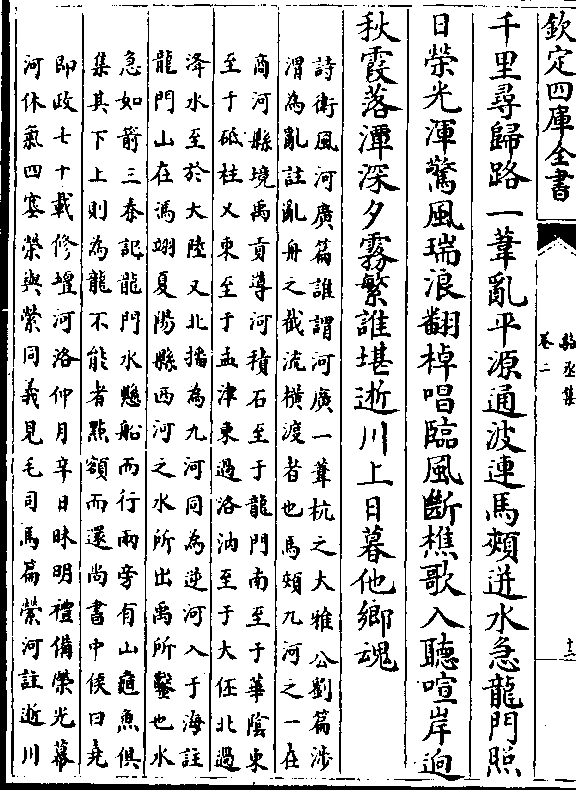 欽定四庫全書
駱丞集
卷二
千里尋歸路一葦亂平源通波連馬頰迸水急龍門照
日榮光渾驚風瑞浪翻棹唱臨風斷樵歌入聽喧岸迥
秋霞落潭深夕霧繁誰堪逝川上日暮他鄉魂
詩衛風河廣篇誰謂河廣一葦杭之大雅公劉篇涉
渭為亂註亂舟之截流橫渡者也馬頰九河之一在
商河縣境禹貢導河積石至于龍門南至于華陰東
至于砥柱又東至于孟津東過洛汭至于大伾北過
洚水至於大陸又北播為九河同為逆河入于海註
龍門山在馮翊夏陽縣西河之水所出禹所鑿也水
急如箭三秦記龍門水懸船而行兩旁有山龜魚俱
集其下上則為龍不能者點額而還尚書中候曰堯
即政七十載修壇河洛仲月辛日昧明禮備榮光幕
河休氣四塞榮與縈同義見毛司馬篇縈河註逝川